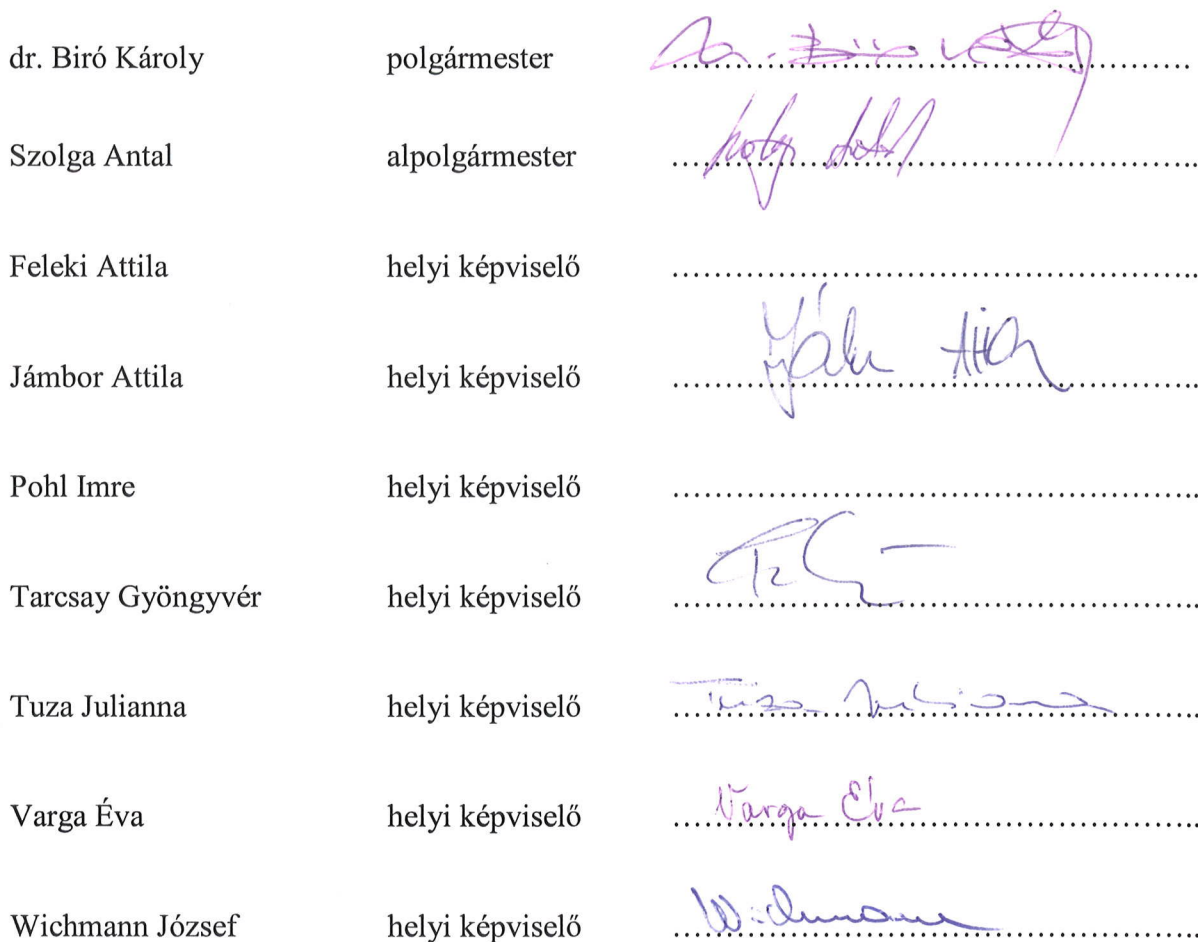 dr. Biró Károly polgármester dr. Biró Károly
Szolga Antal alpolgármester
Feleki Attila helyi képviselő ........................................
Jámbor Attila helyi képviselő Attila
Pohl Imre helyi képviselő ........................................
Tarcsay Gyöngyvér helyi képviselő
Tuza Julianna helyi képviselő Tuza Julianna
Varga Éva helyi képviselő Varga Éva
Wichmann József helyi képviselő Wichmann